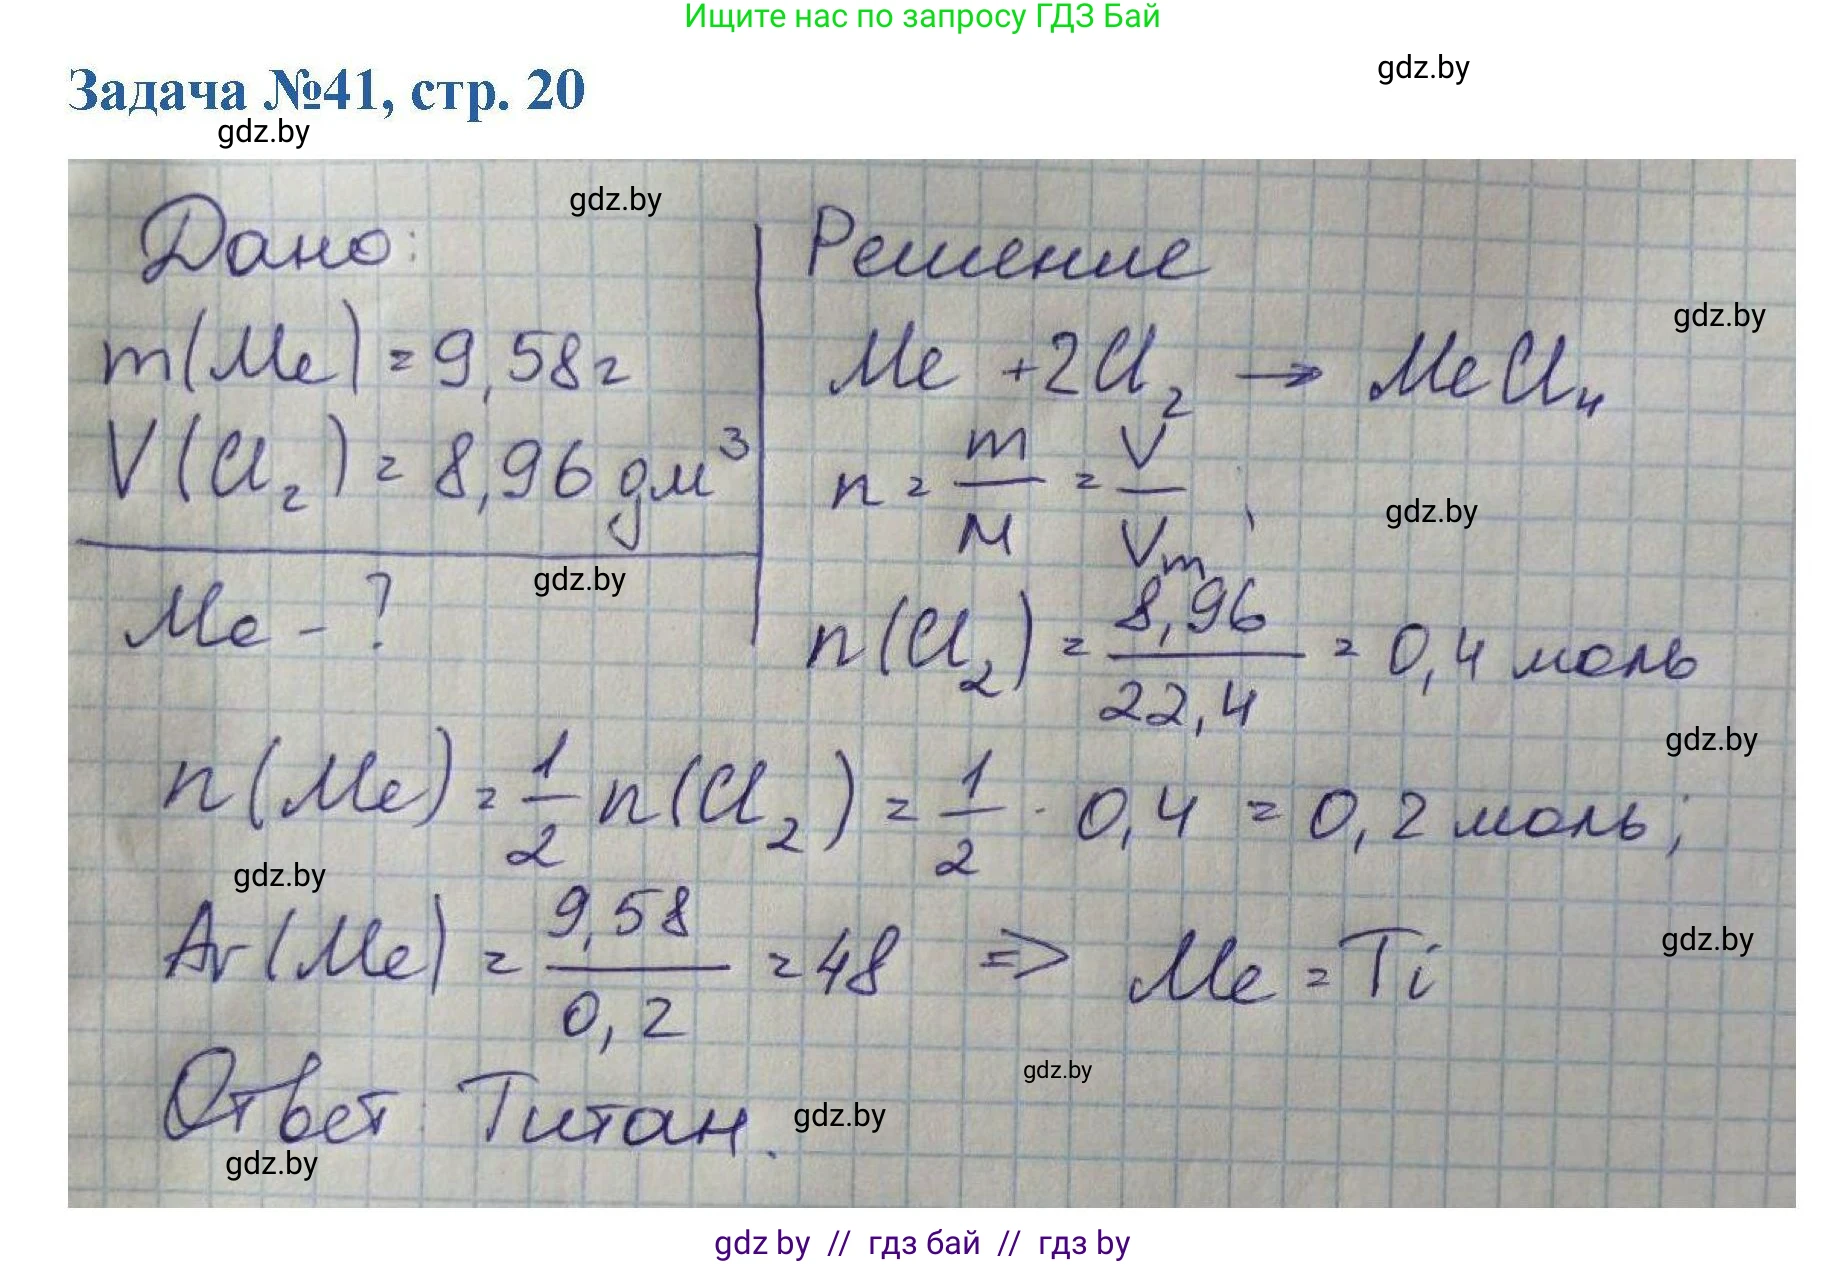 Ищите нас по запросу ГДЗ Бай
gdz.by
Задача №41, стр. 20
gdz.by
gdz.by
Дано:
Решение
gdz.by
m(Me) = 9,58г
Me + 2Cl₂ → MeCl₄
V(Cl₂) = 8,96 дм³
n = m/M = V/Vm;
gdz.by
gdz.by
Me - ?
n(Cl₂) = 8,96/22,4 = 0,4 моль
gdz.by
n(Me) = 1/2 n(Cl₂) = 1/2 · 0,4 = 0,2 моль;
gdz.by
Ar(Me) = 9,58/0,2 = 48 => Me = Ti
gdz.by
gdz.by
Ответ: Титан.
gdz.by
gdz.by
gdz by // гдз бай // гдз by